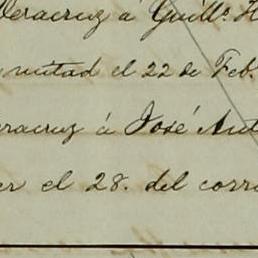 Veracruz á Guill.º H
mitad el 22 de Feb.
eracruz á José Ant
er el 28. del corri